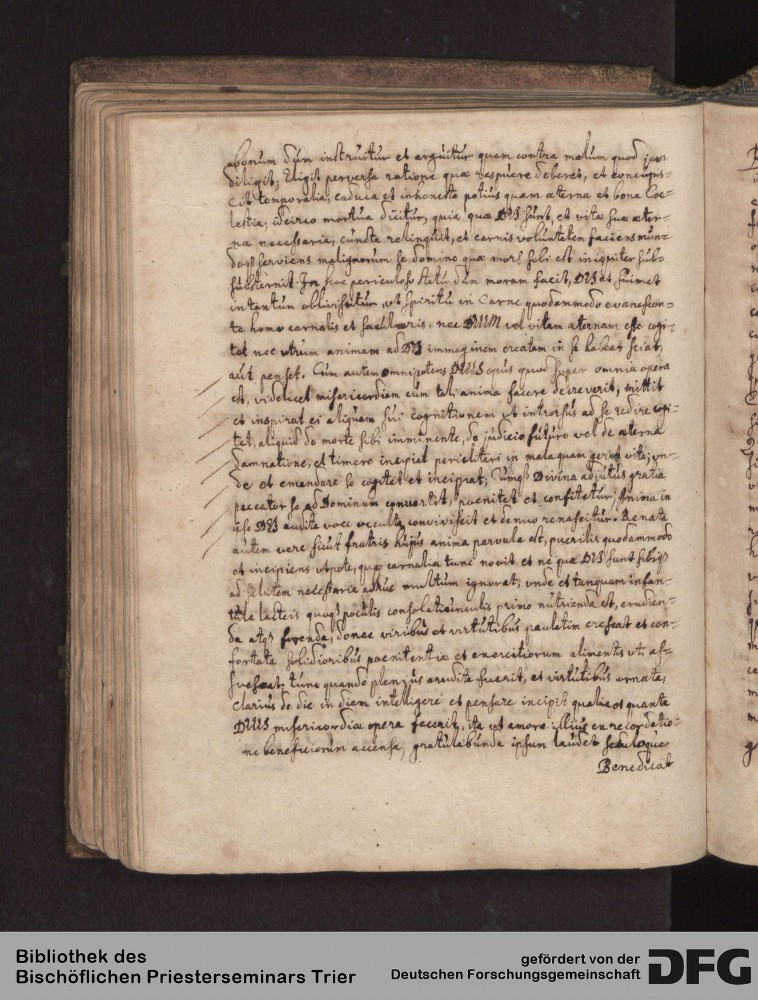 abonum dum instruitur et arguitur quam contra malum quod
diligit; Eligit perversa ratione quæ respuere deberet, et concupis=
cit temporalia, caduca et inhonesta potius quam æterna et bona Coe=
lestia; idcirco mortua dicitur, quia quæ DEI sunt, et vitæ suæ æter=
næ necessaria, cuncta relinquit, et carnis voluntatem faciens mun=
doq3 serviens malignorum se domino quæ mors sibi est iniquiter sub=
substernit. In hoc periculoso statu dum moram facit, DEI et suimet
in tantum obliviscitur, ut spiritu in Carne quodammodo evanescen=
te homo carnalis et sæcularis, nec DEUM vel vitam æternam esse cogi=
tet nec utrum animam ad DEI immaginem creatam in se habeat sciat,
aut penset. Cum autem omnipotens DEUS opus quod super omnia opera
est, videlicet misericordiam cum tali anima facere decreverit, mittit
et inspirat ei aliquam sui cognitionem ut introrsus ad se redire cogi=
tet, aliquid de morte sibi imminente, de judicio futuro vel de æterna
damnatione, et timere incipiat periclitari in mala quam gerit vita; un=
de et emendare se cogitet et incipiat; Cumq3 Divina adjutus gratia
peccator se ad Dominum convertit, poenitet et confitetur, Anima in
ipso DEI audita voce occulta convivescit et denuo renascitur. Renata
autem vere sicut fratris hujus anima parvula est, puerilis quodammodo
et incipiens utpote, quæ carnalia tunc novit et ne quæ DEI sunt sibiq3
ad salutem necessaria adhuc multum ignorat; unde et tanquam infan=
tula lacteis quoq3 poculis consolatiunculis primo nutrienda est, erudien=
da atq3 fovenda, donec viribus et virtutibus paulatim crescat et con=
fortata solidioribus poenitentiæ et exercitiorum alimentis uti as=
suescat, tunc quando plenius erudita fuerit, et virtutibus ornata,
clarius de die in diem intelligere et pensare incipit qualia et quanta
DEUS misericordiæ opera fecerit, ita ut amore illius ex recordatio=
ne beneficiorum accensa, gratulabunda ipsum laudet seduloque
Benedicat
Bibliothek des
Bischöflichen Priesterseminars Trier
gefördert von der
Deutschen Forschungsgemeinschaft
DFG